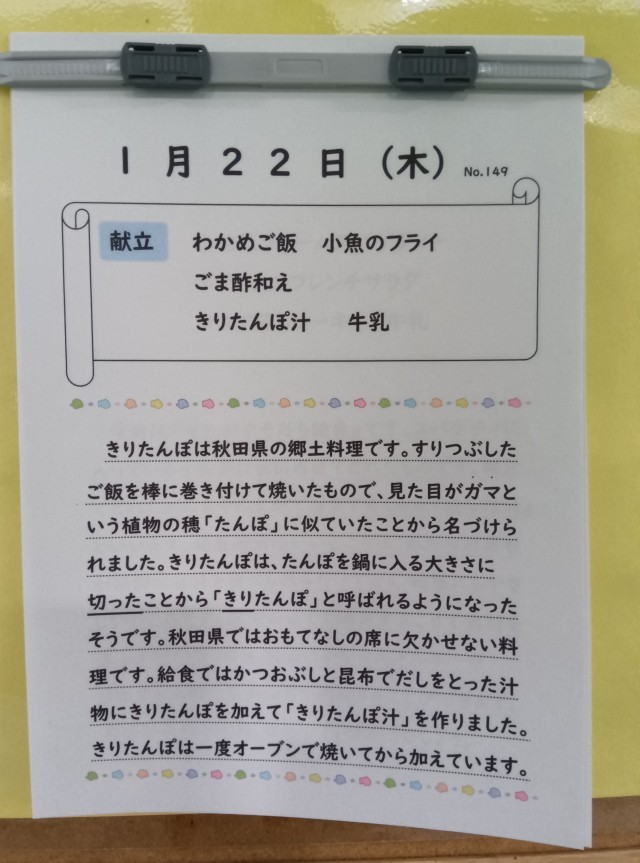 1月22日（木） No.149
献立 わかめご飯 小魚のフライ
ごま酢和え
きりたんぽ汁 牛乳
きりたんぽは秋田県の郷土料理です。すりつぶした
ご飯を棒に巻き付けて焼いたもので、見た目がガマと
いう植物の穂「たんぽ」に似ていたことから名づけら
れました。きりたんぽは、たんぽを鍋に入る大きさに
切ったことから「きりたんぽ」と呼ばれるようになった
そうです。秋田県ではおもてなしの席に欠かせない料
理です。給食ではかつおぶしと昆布でだしをとった汁
物にきりたんぽを加えて「きりたんぽ汁」を作りました。
きりたんぽは一度オーブンで焼いてから加えています。